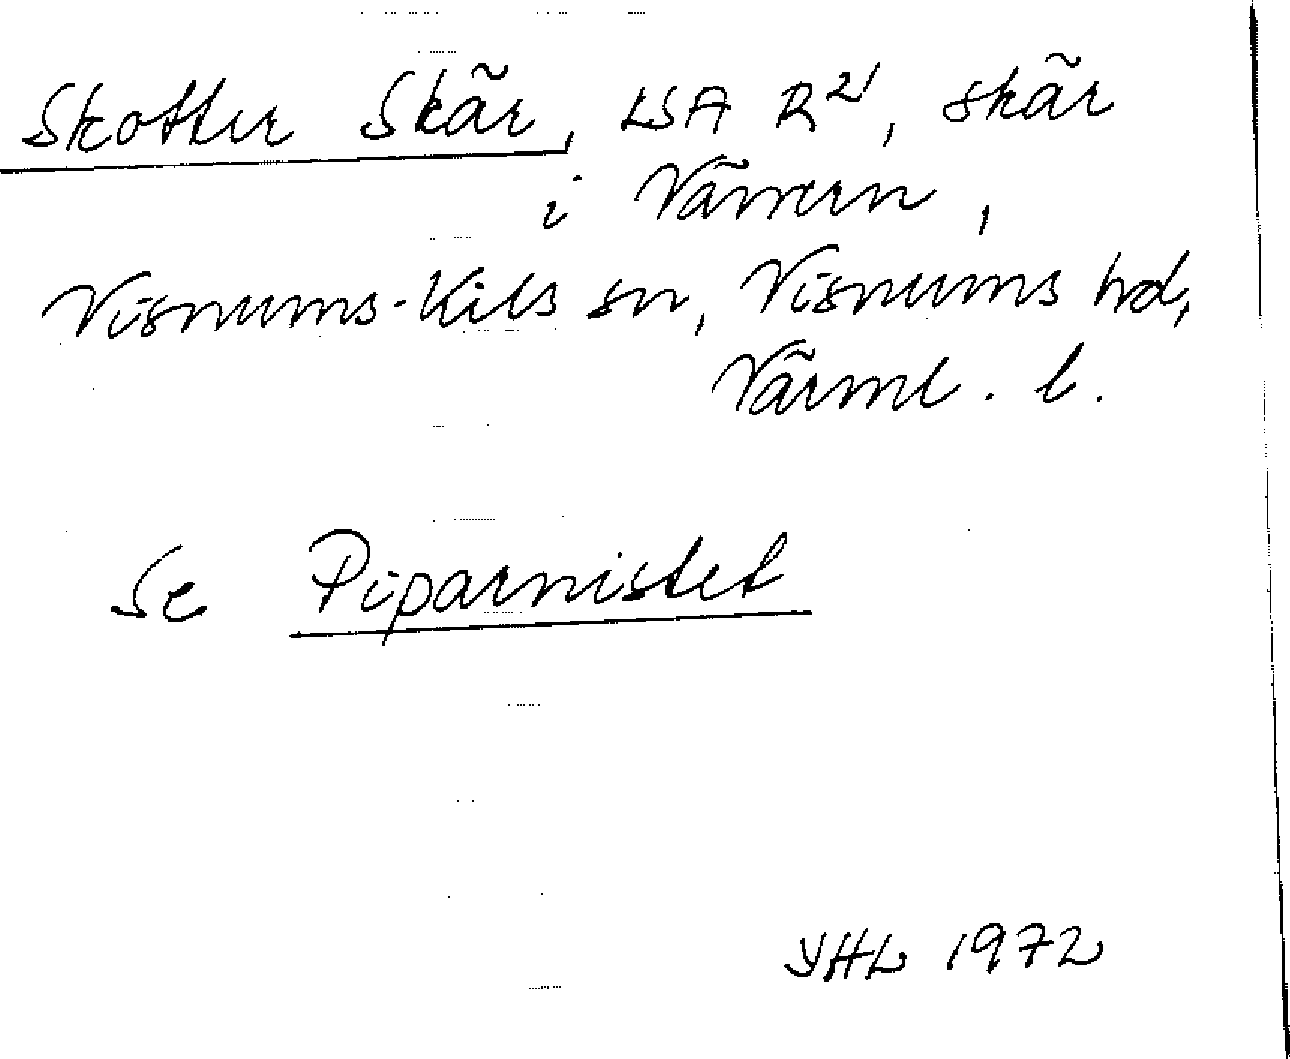 Skotter Skär, LSA R21, skär
i Vänern,
Visnums-Kils sn, Visnums hd,
Värml. l.
Se Piparnistet
YHL 1972